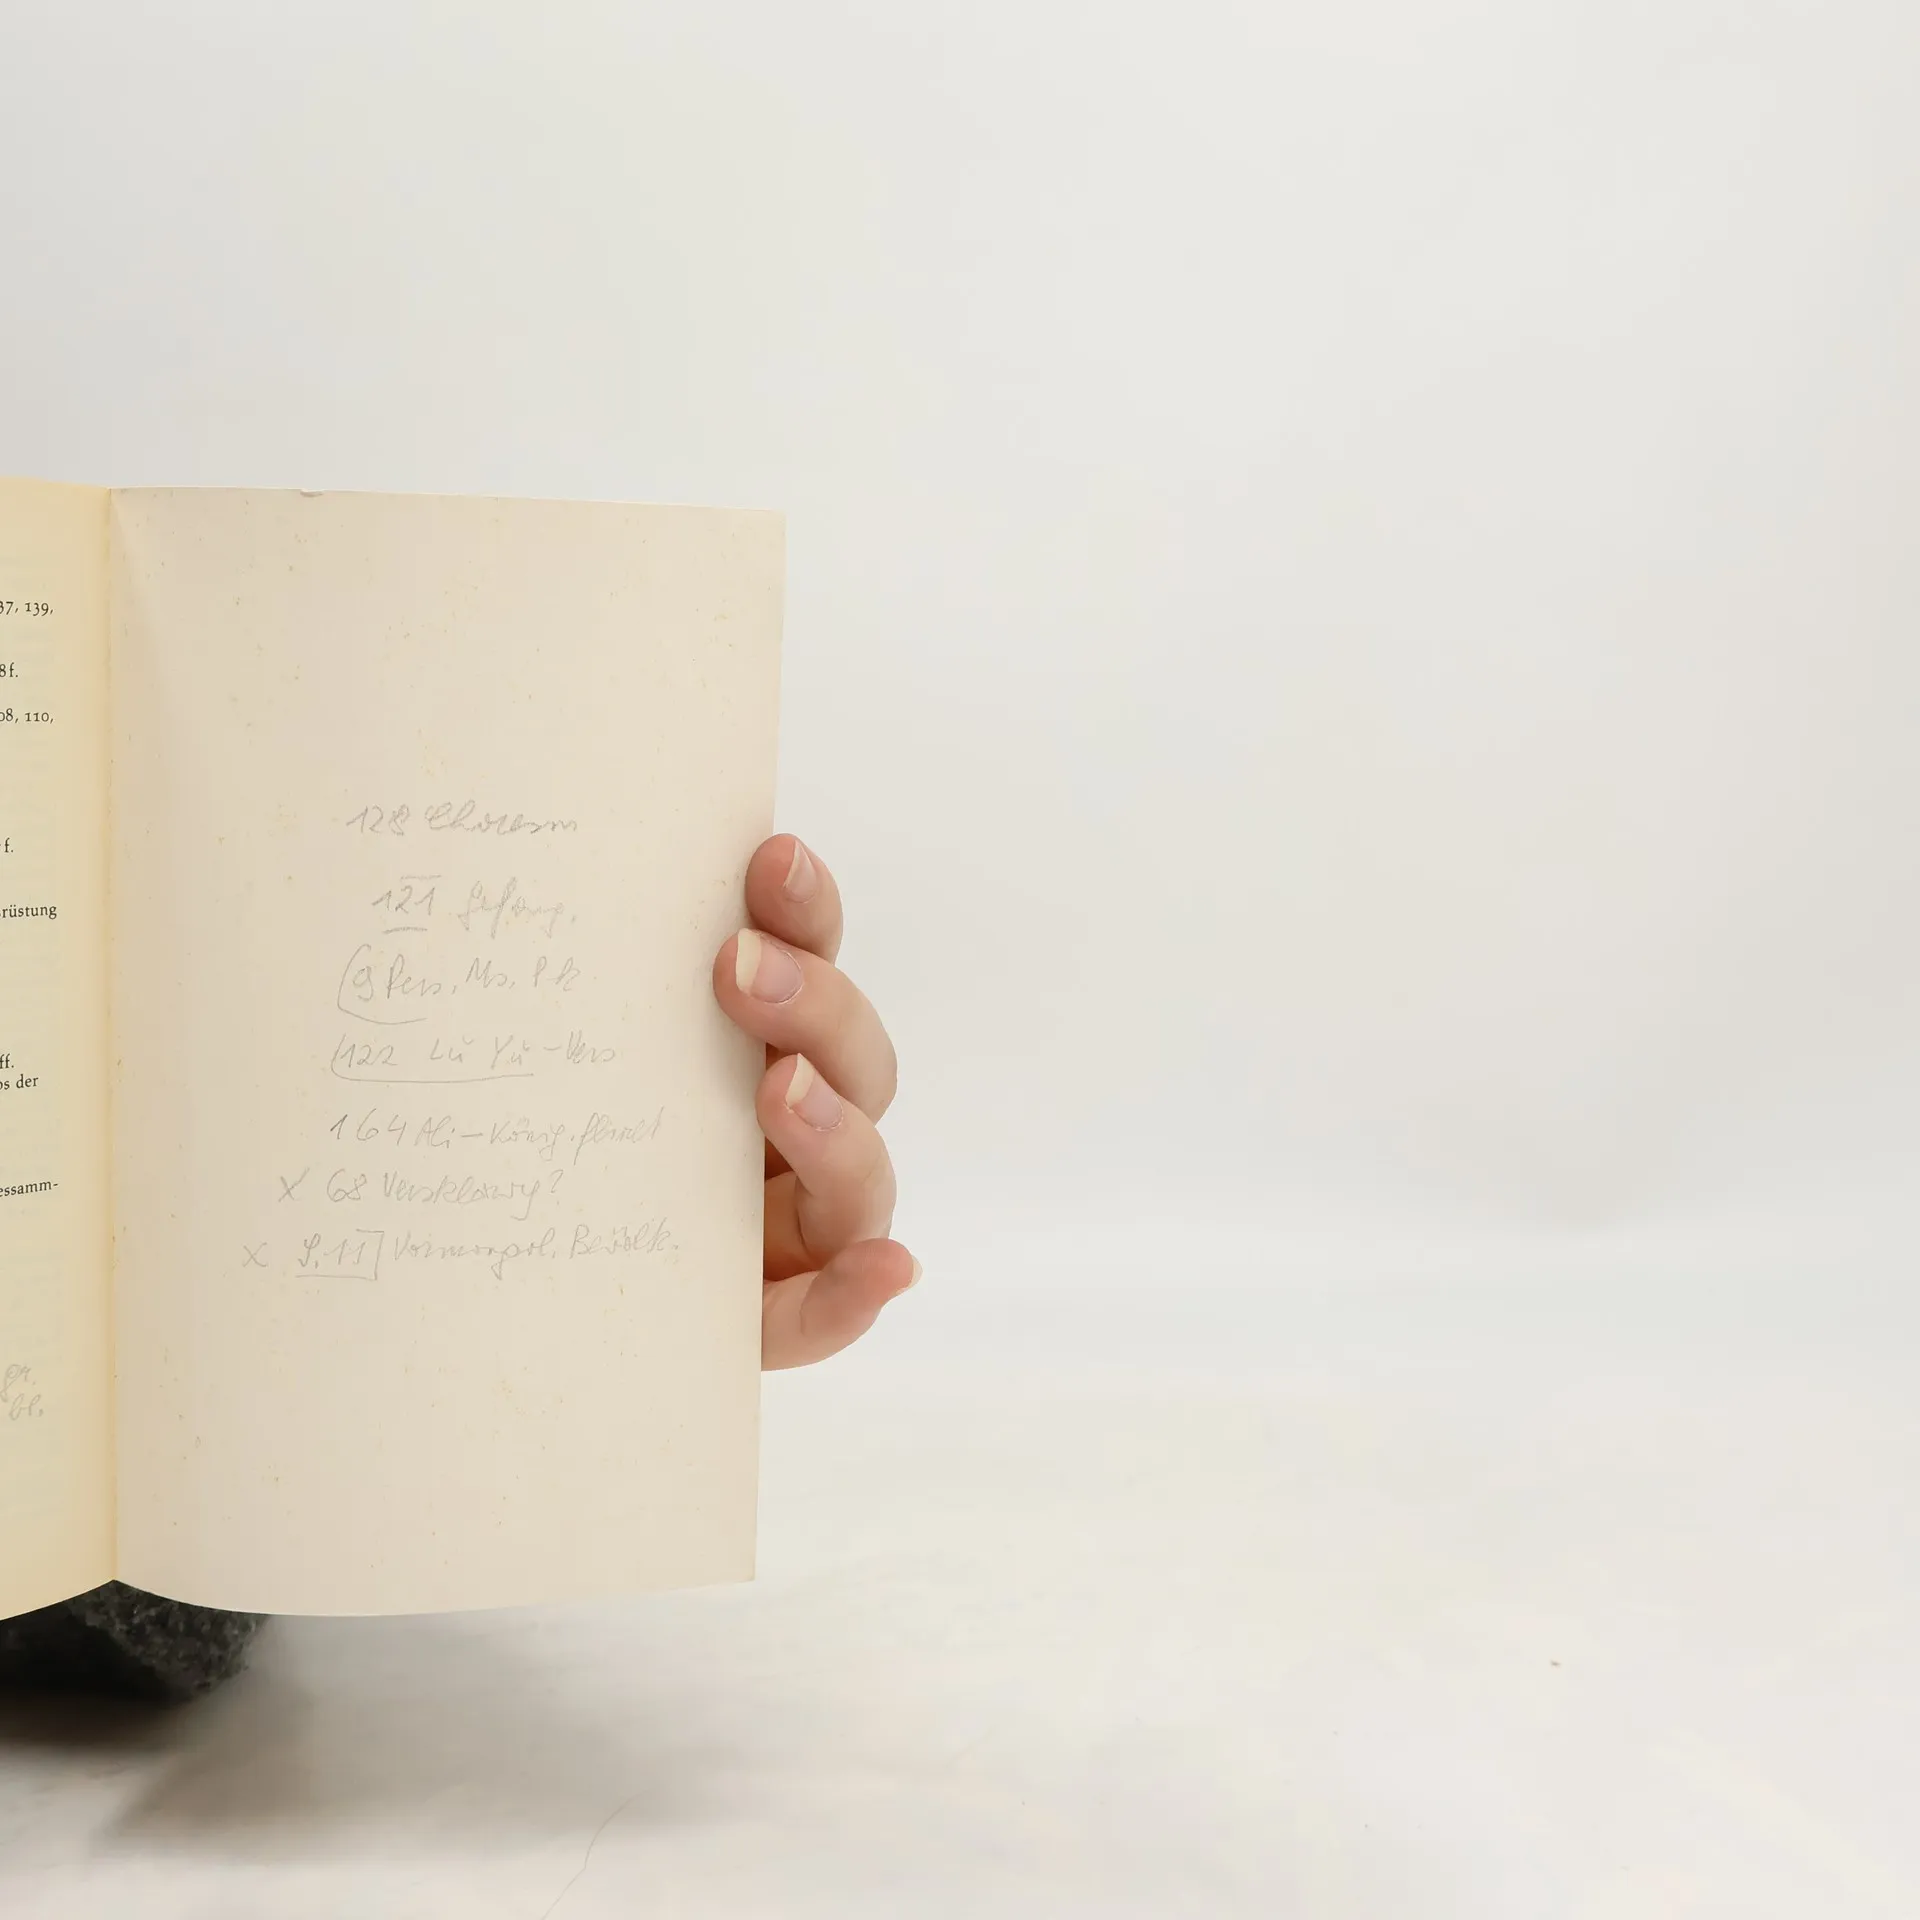 37, 139,
8f.
08, 110,
f.
rüstung
ff.
os der
essamm-
gr.
bl.
128 Choresm
121 Gefang.
9 Pers. Ms.
122 Lü Yü-Vers
164 Ali-König.
x 68 Versklavung?
x S. 11 Vormongol. Bevölk.